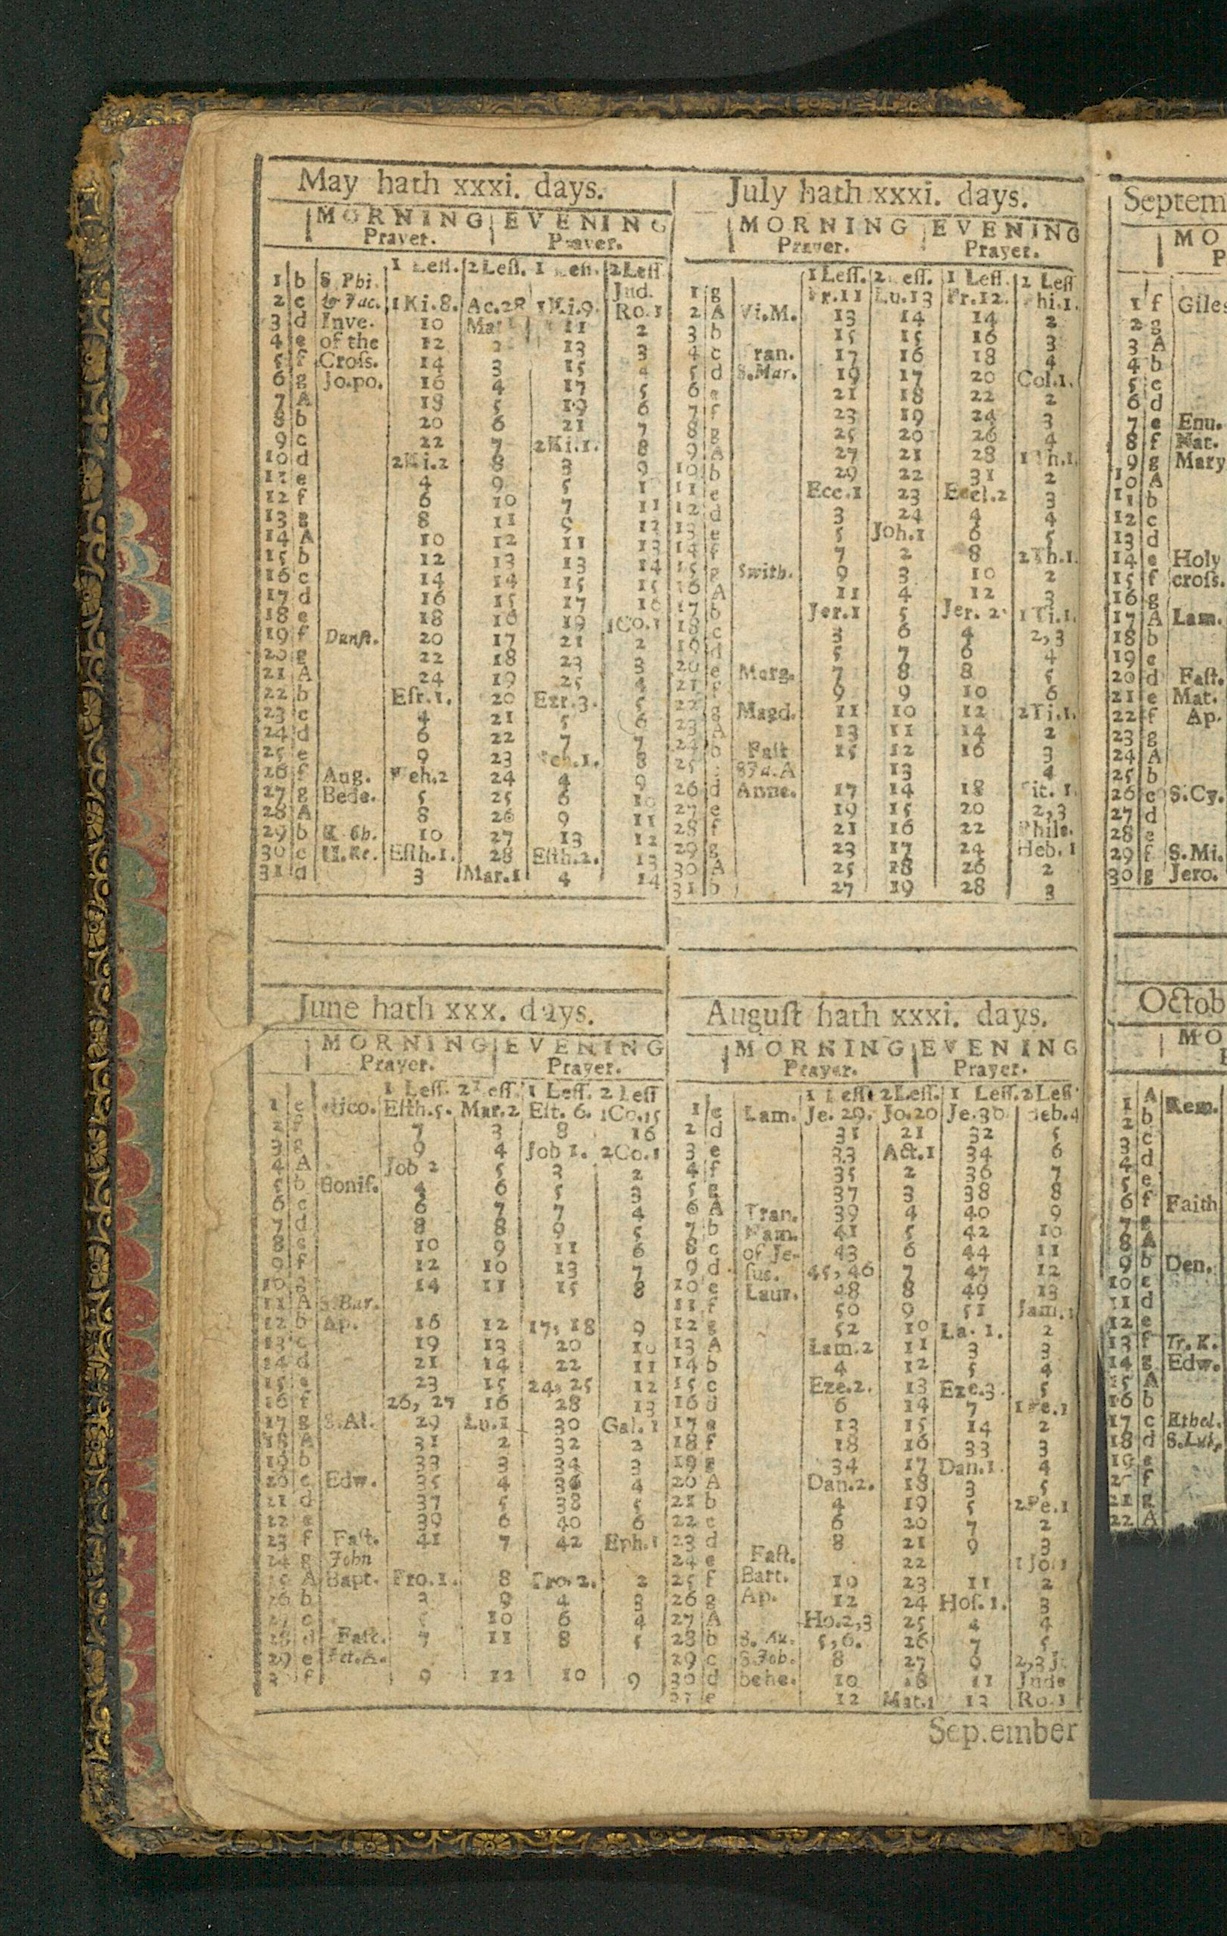 May hath xxxi. days.
MORNING Prayer. EVENING Prayer.
1 Leſſ. 2 Leſſ. 1 Leſſ. 2 Leſſ
1 b S Phi. Jud.
2 c & Jac. 1 Ki.8. Ac.28 1 Ki.9. Ro.1
3 d Inve. 10 11 2
4 e of the 12 2 13 3
5 f Croſs. 14 3 15 4
6 g Jo.po. 16 4 17 5
7 A 18 5 19 6
8 b 20 6 21 7
9 c 22 7 2Ki.1. 8
10 d 2Ki.2 8 3 9
11 e 4 9 5
12 f 6 10 7 11
13 g 8 11 9 12
14 A 10 12 11 13
15 b 12 13 13 14
16 c 14 14 15 15
17 d 16 15 17 16
18 e 18 16 19 1Co.1
19 f Dunſt. 20 17 21 2
20 g 22 18 23 3
21 A 24 19 25 4
22 b Eſr.1. 20 Ezr.3. 5
23 c 4 21 5 6
24 d 6 22 7 7
25 e 9 23 Neh.1. 8
26 f Aug. Neh.2 24 4 9
27 g Bede. 5 25 6 10
28 A 8 26 9 11
29 b K. Ch. 10 27 13 12
30 c II.Re. Eſth.1. 28 Eſth.2. 13
31 d 3 Mar.1 4 14
June hath xxx. days.
MORNING Prayer. EVENING Prayer.
1 Leſſ. 2 Leſſ. 1 Leſſ. 2 Leſſ
1 e Nico. Eſth.5. Mar.2 Eſt. 6. 1Co.15
2 f 7 3 8 16
3 g 9 4 Job 1. 2Co.1
4 A Job 2 5 3 2
5 b Bonif. 4 6 5 3
6 c 6 7 7 4
7 d 8 8 9 5
8 e 10 9 11 6
9 f 12 10 13 7
10 g 14 11 15 8
11 A S.Bar.
12 b Ap. 16 12 17, 18 9
13 c 19 13 20 10
14 d 21 14 22 11
15 e 23 15 24, 25 12
16 f 26, 27 16 28 13
17 g S.Al. 29 Lu.1 30 Gal.1
18 A 31 2 32 2
19 b 33 3 34 3
20 c Edw. 35 4 36 4
21 d 37 5 38 5
22 e 39 6 40 6
23 f Faſt. 41 7 42 Eph.1
24 g John
25 A Bapt. Pro.1. 8 Pro.2. 2
26 b 3 9 4 3
27 c 5 10 6 4
28 d Faſt. 7 11 8 5
29 e Pet.A.
3 f 9 12 10 9
July hath xxxi. days.
MORNING Prayer. EVENING Prayer.
1 Leſſ. 2 Leſſ. 1 Leſſ. 2 Leſſ
1 g Pr.11 Lu.13 Pr.12. Phi.1.
2 A Vi.M. 13 14 14 2
3 b 15 15 16 3
4 c Tran. 17 16 18 4
5 d S.Mar. 19 17 20 Col.1.
6 e 21 18 22 2
7 f 23 19 24 3
8 g 25 20 26 4
9 A 27 21 28 1Th.1.
10 b 29 22 31 2
11 c Ecc.1 23 Eccl.2 3
12 d 3 24 4 4
13 e 5 Joh.1 6 5
14 f 7 2 8 2Th.1.
15 g Swith. 9 3 10 2
16 A 11 4 12 3
17 b Jer.1 5 Jer. 2. 1Ti.1.
18 c 3 6 4 2,3
19 d 5 7 6 4
20 e Marg. 7 8 8 5
21 f 9 9 10 6
22 g Magd. 11 10 12 2Ti.1.
23 A 13 11 14 2
24 b Faſt 15 12 16 3
25 c S Ja.A 13 4
26 d Anne. 17 14 18 Tit. 1.
27 e 19 15 20 2,3
28 f 21 16 22 Phile.
29 g 23 17 24 Heb.1
30 A 25 18 26 2
31 b 27 19 28 3
Auguſt hath xxxi. days.
MORNING Prayer. EVENING Prayer.
1 Leſſ. 2 Leſſ. 1 Leſſ. 2 Leſſ
1 c Lam. Je. 29. Jo.20 Je.30 Heb.4
2 d 31 21 32 5
3 e 33 Act.1 34 6
4 f 35 2 36 7
5 g 37 3 38 8
6 A Tran. 39 4 40 9
7 b Nam. 41 5 42 10
8 c of Je- 43 6 44 11
9 d ſus. 45, 46 7 47 12
10 e Laur. 48 8 49 13
11 f 50 9 51 Jam.1
12 g 52 10 La. 1. 2
13 A Lam.2 11 3 3
14 b 4 12 5 4
15 c Eze.2. 13 Eze.3. 5
16 d 6 14 7 1Pe.1
17 e 13 15 14 2
18 f 18 16 33 3
19 g 34 17 Dan.1. 4
20 A Dan.2. 18 3 5
21 b 4 19 5 2Pe.1
22 c 6 20 7 2
23 d 8 21 9 3
24 e Faſt. 22 1 Jo.1
25 f Bart. 10 23 11 2
26 g Ap. 12 24 Hoſ.1. 3
27 A Ho.2,3 25 4 4
28 b S. Au. 5,6. 26 7 5
29 c S Joh. 8 27 9 2,3 J.
30 d behe. 10 28 11 Jude
31 e 12 Mat.1 13 Ro.1
Sep.ember
Septem
MO
P
1 f Giles
2 g
3 A
4 b
5 c
6 d
7 e Enu.
8 f Nat.
9 g Mary
10 A
11 b
12 c
13 d
14 e Holy
15 f croſs.
16 g
17 A Lam.
18 b
19 c
20 d Faſt.
21 e Mat.
22 f Ap.
23 g
24 A
25 b
26 c S.Cy.
27 d
28 e
29 f S.Mi.
30 g Jero.
Octob
MO
1 A Rem.
2 b
3 c
4 d
5 e
6 f Faith
7 g
8 A
9 b Den.
10 c
11 d
12 e
13 f Tr. K.
14 g Edw.
15 A
16 b
17 c Ethel.
18 d S.Luk.
19 e
20 f
21 g
22 A